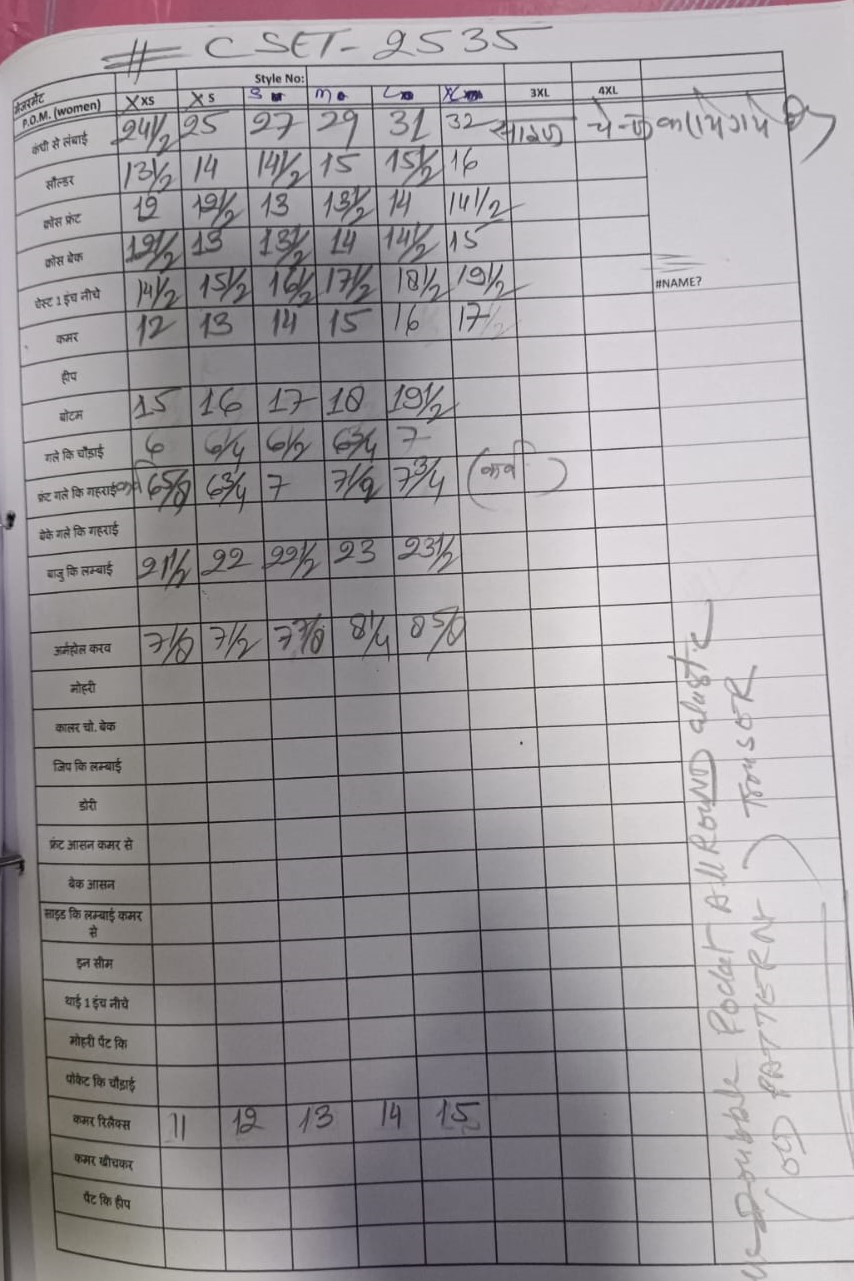 # CSET-2535
मेजरमेंट Style No:
P.O.M. (women) XXS XS S M L XL 3XL 4XL
कंधी से लंबाई 24 1/2 25 27 29 31 32 साइज चेन्ज
सौल्डर 13 1/2 14 14 1/2 15 15 1/2 16
क्रोस फ्रंट 12 12 1/2 13 13 1/2 14 14 1/2
क्रोस बेक 12 1/2 13 13 1/2 14 14 1/2 15
चेस्ट 1 इंच नीचे 14 1/2 15 1/2 16 1/2 17 1/2 18 1/2 19 1/2
#NAME?
कमर 12 13 14 15 16 17
हीप
बोटम 15 16 17 18 19 1/2
गले कि चौड़ाई 6 6 1/4 6 1/2 6 3/4 7
फ्रंट गले कि गहराई कर्व 6 5/8 6 3/4 7 7 1/2 7 3/4 (कर्व)
बेके गले कि गहराई
बाजु कि लम्बाई 21 1/2 22 22 1/2 23 23 1/2
अर्महोल करव 7 1/8 7 1/2 7 7/8 8 1/4 8 5/8
मोहरी
कालर चो. बेक
जिप कि लम्बाई
डोरी
फ्रंट आसन कमर से
बेक आसन
साइड कि लम्बाई कमर
से
इन सीम
थाई 1 इंच नीचे
मोहरी पैंट कि
पोकेट कि चौड़ाई
कमर रिलैक्स 11 12 13 14 15
कमर खीचकर
पैंट कि हीप
Doubble Pocket All ROUND elastic
(OLD PATTERN) TROUSER